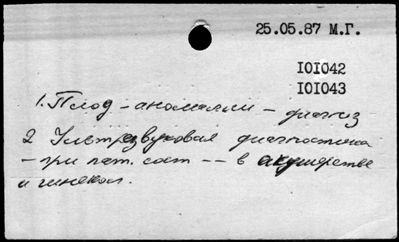 25.05.87 М.Г.
101042
101043
1. Плод – аномалии – диагноз
2 Ультразвуковая диагностика
– при пат. сост –– в акушерстве
и гинекол.